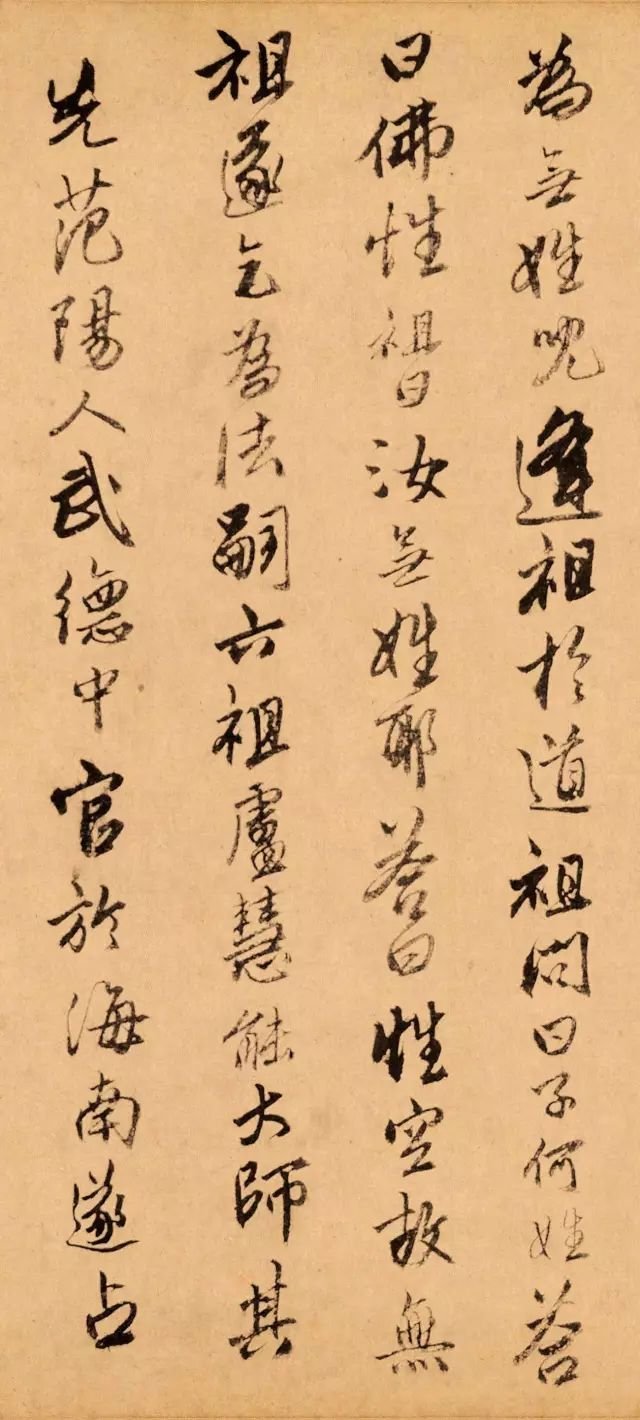 為無姓児逢祖於道祖問曰子何姓答
曰佛性祖曰汝無姓耶答曰性空故無
祖遂乞為法嗣六祖盧慧能大師其
先范陽人武德中官於海南遂占